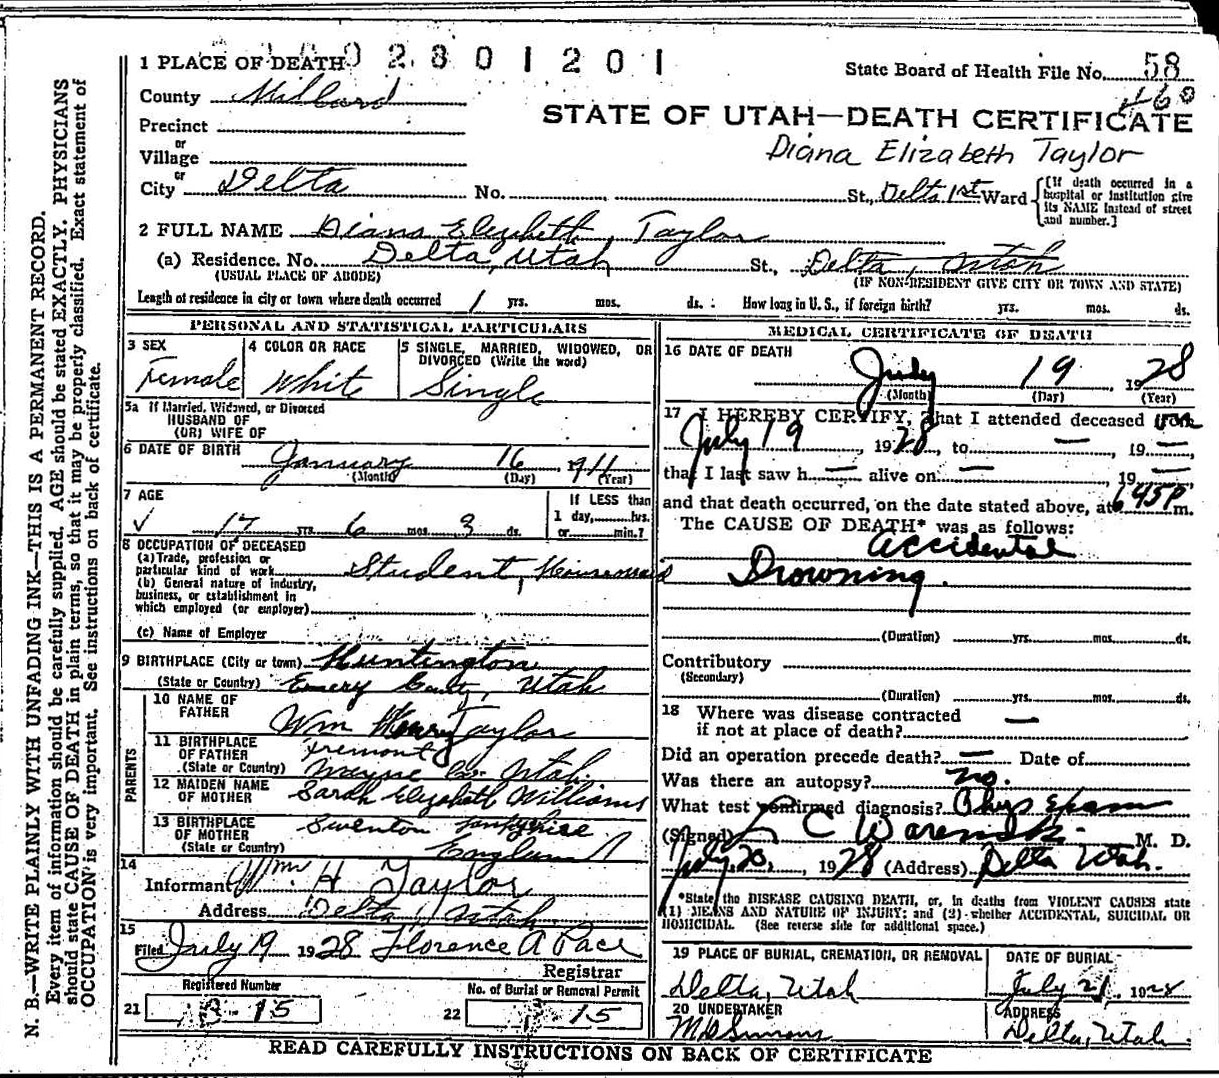 2 8 0 1 2 0 1
1 PLACE OF DEATH
State Board of Health File No. 58
460
County Millard
STATE OF UTAH—DEATH CERTIFICATE
Precinct
Diana Elizabeth Taylor
or
Village
or
City Delta No. St., Delta 1st Ward
[If death occurred in a hospital or institution give its NAME instead of street and number.]
2 FULL NAME Diana Elizabeth Taylor
(a) Residence. No. Delta, Utah St., Delta, Utah
(USUAL PLACE OF ABODE) (IF NON-RESIDENT GIVE CITY OR TOWN AND STATE)
Length of residence in city or town where death occurred 1 yrs. mos. ds. How long in U. S., if foreign birth? yrs. mos. ds.
PERSONAL AND STATISTICAL PARTICULARS
3 SEX
Female
4 COLOR OR RACE
White
5 SINGLE, MARRIED, WIDOWED, OR
DIVORCED (Write the word)
Single
5a If Married, Widowed, or Divorced
HUSBAND OF
(OR) WIFE OF
6 DATE OF BIRTH January 16 1911
(Month) (Day) (Year)
7 AGE
17 yrs. 6 mos. 3 ds.
If LESS than
1 day, hrs.
or min.?
8 OCCUPATION OF DECEASED
(a) Trade, profession or
particular kind of work Student, Housemaid
(b) General nature of industry,
business, or establishment in
which employed (or employer)
(c) Name of Employer
9 BIRTHPLACE (City or town) Huntington
(State or Country) Emery County, Utah
PARENTS
10 NAME OF
FATHER Wm Henry Taylor
11 BIRTHPLACE
OF FATHER Fremont
(State or Country) Wayne Co. Utah
12 MAIDEN NAME
OF MOTHER Sarah Elizabeth Williams
13 BIRTHPLACE
OF MOTHER
(State or Country) England
14
Informant Wm. H Taylor
Address Delta, Utah
15
Filed July 19 1928 Florence A Pace
Registrar
Registered Number
21 15
No. of Burial or Removal Permit
22 15
MEDICAL CERTIFICATE OF DEATH
16 DATE OF DEATH
July 19, 1928
(Month) (Day) (Year)
17 I HEREBY CERTIFY, That I attended deceased from
July 19 1928, to — 19—,
that I last saw h— alive on — 19—
and that death occurred, on the date stated above, at 6 45 P m.
The CAUSE OF DEATH* was as follows:
Accidental
Drowning.
(Duration) yrs. mos. ds.
Contributory
(Secondary)
(Duration) yrs. mos. ds.
18 Where was disease contracted
if not at place of death? —
Did an operation precede death? — Date of
Was there an autopsy? no.
What test confirmed diagnosis? Phys Exam
(Signed) C Warenski M. D.
July 20, 1928 (Address) Delta Utah.
*State the DISEASE CAUSING DEATH, or, in deaths from VIOLENT CAUSES state
(1) MEANS AND NATURE OF INJURY; and (2) whether ACCIDENTAL, SUICIDAL OR
HOMICIDAL. (See reverse side for additional space.)
19 PLACE OF BURIAL, CREMATION, OR REMOVAL
Delta, Utah
DATE OF BURIAL
July 21, 1928
20 UNDERTAKER
ADDRESS
Delta, Utah
READ CAREFULLY INSTRUCTIONS ON BACK OF CERTIFICATE
N. B.—WRITE PLAINLY WITH UNFADING INK—THIS IS A PERMANENT RECORD.
Every item of information should be carefully supplied. AGE should be stated EXACTLY. PHYSICIANS
should state CAUSE OF DEATH in plain terms, so that it may be properly classified. Exact statement of
OCCUPATION is very important. See instructions on back of certificate.